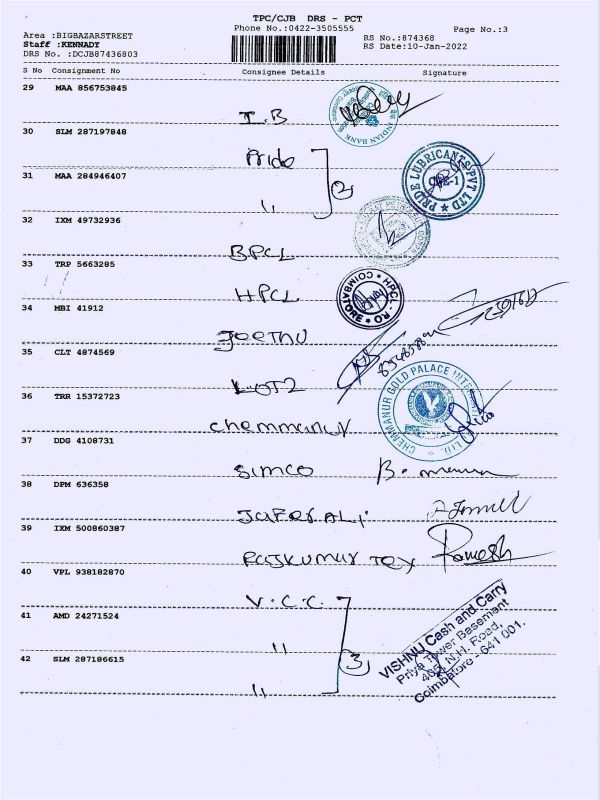 TPC/CJB DRS - PCT
Phone No.:0422-3505555
Page No.:3
Area :BIGBAZARSTREET
RS No.:874368
Staff :KENNADY
RS Date:10-Jan-2022
DRS No. :DCJB87436803
S No Consignment No Consignee Details Signature
29 MAA 856753845
I.B
INDIAN BANK
30 SLM 287197848
Pride
31 MAA 284946407
2
PRIDE LUBRICANTS PVT LTD
CBE-1
"
32 IXM 49732936
BPCL
33 TRP 5663285
HPCL
HPCL - RO
COIMBATORE
34 MBI 41912
Jeethu
35 CLT 4874569
36 TRR 15372723
Chemmanur
CHEMMANUR GOLD PALACE INTERNATIONAL LTD.
37 DDG 4108731
Simco
38 DPM 636358
Jafer Ali
39 IXM 500860387
Rajkumar Tex Ramesh
40 VPL 938182870
V.C.C.
41 AMD 24271524
"
3
42 SLM 287186615
"
VISHNU Cash and Carry
Priya Tower Basement
465, N.H. Road,
Coimbatore - 641 001.